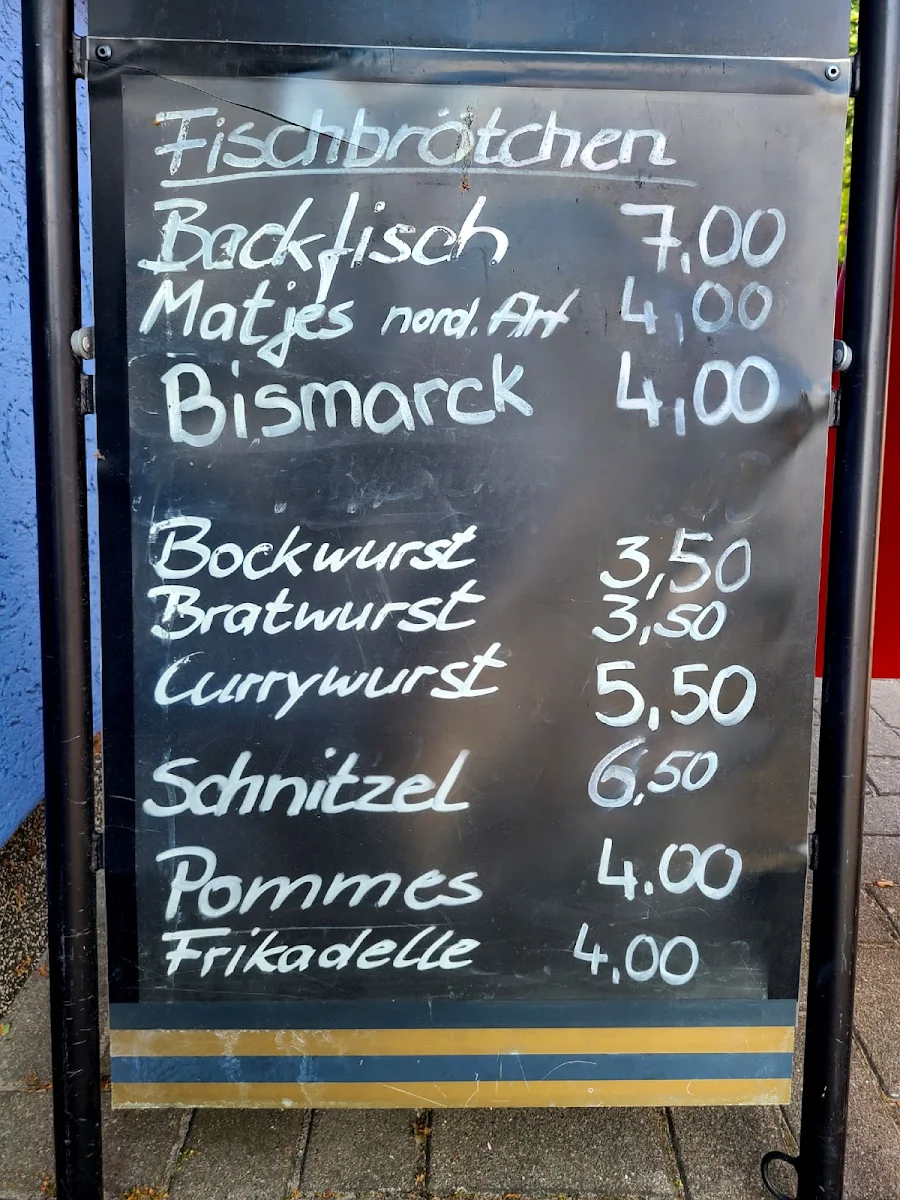 Fischbrötchen
Backfisch 7,00
Matjes nord. Art 4,00
Bismarck 4,00
Bockwurst 3,50
Bratwurst 3,50
Currywurst 5,50
Schnitzel 6,50
Pommes 4.00
Frikadelle 4,00